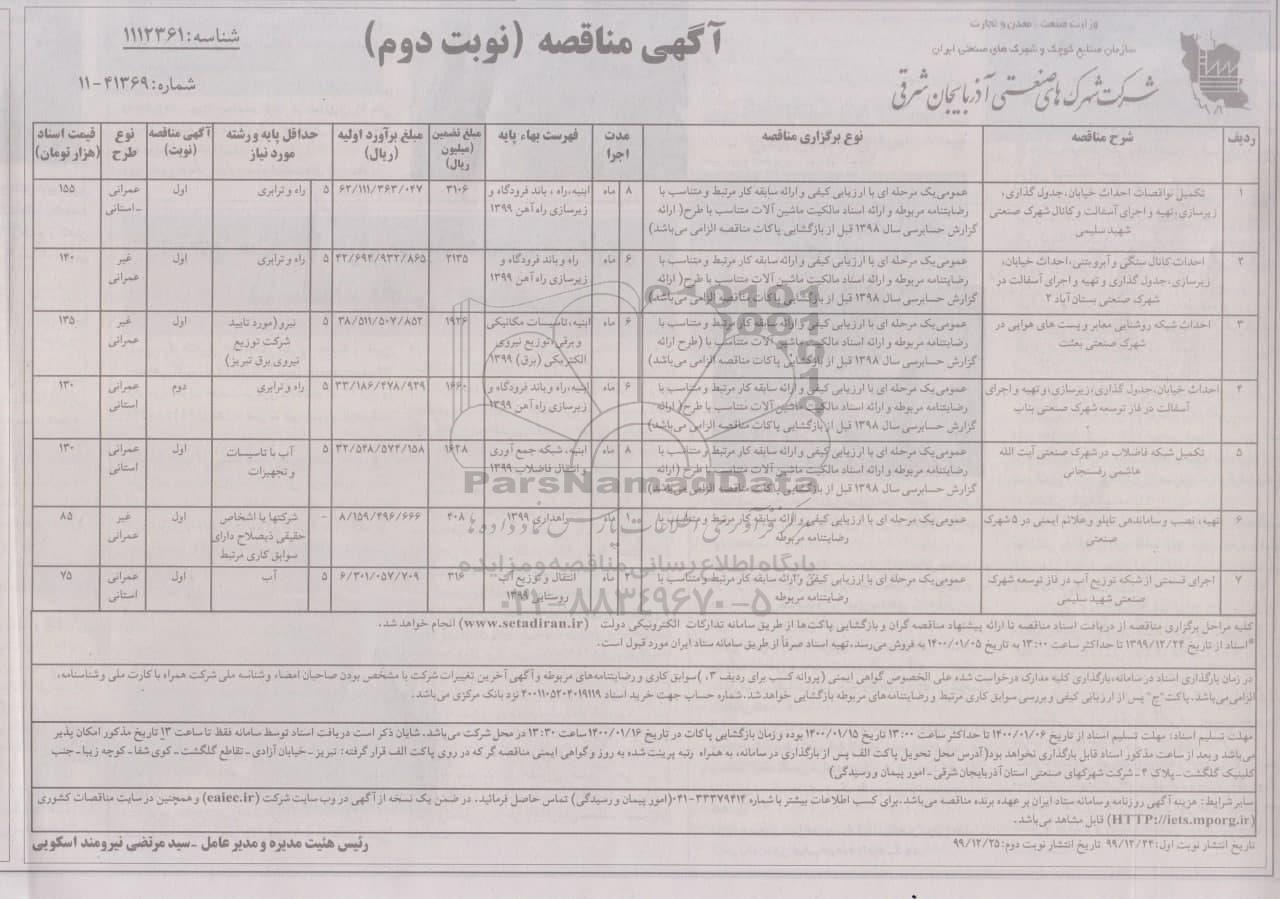 وزارت صنعت، معدن و تجارت
سازمان صنایع کوچک و شهرک های صنعتی ایران
شرکت شهرک های صنعتی آذربایجان شرقی
آگهی مناقصه (نوبت دوم)
شناسه: ۱۱۱۲۳۶۱
شماره: ۴۱۳۶۹-۱۱
ردیف | شرح مناقصه | نوع برگزاری مناقصه | مدت اجرا | فهرست بهاء پایه | مبلغ تضمین (میلیون ریال) | مبلغ برآورد اولیه (ریال) | حداقل پایه و رشته مورد نیاز | آگهی مناقصه (نوبت) | نوع طرح | قیمت اسناد (هزار تومان)
۱ | تکمیل نواقصات احداث خیابان، جدول گذاری، زیرسازی، تهیه و اجرای آسفالت و کانال شهرک صنعتی شهید سلیمی | عمومی یک مرحله ای با ارزیابی کیفی و ارائه سابقه کار مرتبط و متناسب با رضایتنامه مربوطه و ارائه اسناد مالکیت ماشین آلات متناسب با طرح( ارائه گزارش حسابرسی سال ۱۳۹۸ قبل از بازگشایی پاکات مناقصه الزامی می‌باشد) | ۸ ماه | ابنیه، راه ، باند فرودگاه و زیرسازی راه آهن ۱۳۹۹ | ۳۱۰۶ | ۶۲/۱۱۱/۳۶۳/۰۴۷ | ۵ راه و ترابری | اول | عمرانی -استانی | ۱۵۵
۲ | احداث کانال سنگی و آبرو بتنی، احداث خیابان، زیرسازی، جدول گذاری و تهیه و اجرای آسفالت در شهرک صنعتی بستان آباد ۲ | عمومی یک مرحله ای با ارزیابی کیفی و ارائه سابقه کار مرتبط و متناسب با رضایتنامه مربوطه و ارائه اسناد مالکیت ماشین آلات متناسب با طرح( ارائه گزارش حسابرسی سال ۱۳۹۸ قبل از بازگشایی پاکات مناقصه الزامی می‌باشد) | ۶ ماه | راه و باند فرودگاه و زیرسازی راه آهن ۱۳۹۹ | ۲۱۳۵ | ۴۲/۶۹۴/۹۳۲/۸۶۵ | ۵ راه و ترابری | اول | غیر عمرانی | ۱۴۰
۳ | احداث شبکه روشنایی معابر و پست های هوایی در شهرک صنعتی بعثت | عمومی یک مرحله ای با ارزیابی کیفی و ارائه سابقه کار مرتبط و متناسب با رضایتنامه مربوطه و ارائه اسناد مالکیت ماشین آلات متناسب با (طرح ارائه گزارش حسابرسی سال ۱۳۹۸ قبل از بازگشایی پاکات مناقصه الزامی می‌باشد) | ۶ ماه | ابنیه، تاسیسات مکانیکی و برقی، توزیع نیروی الکتریکی (برق) ۱۳۹۹ | ۱۹۲۶ | ۳۸/۵۱۱/۵۰۷/۸۵۲ | ۵ نیرو (مورد تایید شرکت توزیع نیروی برق تبریز) | اول | غیر عمرانی | ۱۳۵
۴ | احداث خیابان، جدول گذاری، زیرسازی، و تهیه و اجرای آسفالت در فاز توسعه شهرک صنعتی بناب | عمومی یک مرحله ای با ارزیابی کیفی و ارائه سابقه کار مرتبط و متناسب با رضایتنامه مربوطه و ارائه اسناد مالکیت ماشین آلات متناسب با طرح( ارائه گزارش حسابرسی سال ۱۳۹۸ قبل از بازگشایی پاکات مناقصه الزامی می‌باشد) | ۶ ماه | ابنیه، راه و باند فرودگاه و زیرسازی راه آهن ۱۳۹۹ | ۱۶۶۰ | ۳۳/۱۸۶/۴۷۸/۹۴۹ | ۵ راه و ترابری | دوم | عمرانی استانی | ۱۳۰
۵ | تکمیل شبکه فاضلاب در شهرک صنعتی آیت الله هاشمی رفسنجانی | عمومی یک مرحله ای با ارزیابی کیفی و ارائه سابقه کار مرتبط و متناسب با رضایتنامه مربوطه و ارائه اسناد مالکیت ماشین آلات متناسب با طرح (ارائه گزارش حسابرسی سال ۱۳۹۸ قبل از بازگشایی پاکات مناقصه الزامی می‌باشد) | ۸ ماه | ابنیه، شبکه جمع آوری و انتقال فاضلاب ۱۳۹۹ | ۱۶۲۸ | ۳۲/۵۴۸/۵۷۴/۱۵۸ | ۵ آب با تاسیسات و تجهیزات | اول | عمرانی استانی | ۱۳۰
۶ | تهیه، نصب و ساماندهی تابلو و علائم ایمنی در ۵ شهرک صنعتی | عمومی یک مرحله ای با ارزیابی کیفی و ارائه سابقه کار مرتبط و متناسب با رضایتنامه مربوطه | ماه | راهداری ۱۳۹۹ | ۴۰۸ | ۸/۱۵۹/۴۹۶/۶۶۶ | - شرکتها یا اشخاص حقیقی ذیصلاح دارای سوابق کاری مرتبط | اول | غیر عمرانی | ۸۵
۷ | اجرای قسمتی از شبکه توزیع آب در فاز توسعه شهرک صنعتی شهید سلیمی | عمومی یک مرحله ای با ارزیابی کیفی و ارائه سابقه کار مرتبط و متناسب با رضایتنامه مربوطه | ۲ ماه | انتقال و توزیع آب روستایی ۱۳۹۹ | ۳۱۶ | ۶/۳۰۱/۰۵۷/۷۰۹ | ۵ آب | اول | عمرانی استانی | ۷۵
کلیه مراحل برگزاری مناقصه از دریافت اسناد مناقصه تا ارائه پیشنهاد مناقصه گران و بازگشایی پاکت‌ها از طریق سامانه تدارکات الکترونیکی دولت (www.setadiran.ir) انجام خواهد شد.
*اسناد از تاریخ ۱۳۹۹/۱۲/۲۴ تا حداکثر ساعت ۱۳:۰۰ به تاریخ ۱۴۰۰/۰۱/۰۵ به فروش می‌رسد، تهیه اسناد صرفاً از طریق سامانه ستاد ایران مورد قبول است.
در زمان بارگذاری اسناد در سامانه، بارگذاری کلیه مدارک درخواست شده علی الخصوص گواهی ایمنی (پروانه کسب برای ردیف ۳، )سوابق کاری و رضایتنامه‌های مربوطه و آگهی آخرین تغییرات شرکت با مشخص بودن صاحبان امضاء و شناسه ملی شرکت همراه با کارت ملی و شناسنامه،
الزامی می‌باشد. پاکت "ج" پس از ارزیابی کیفی و بررسی سوابق کاری مرتبط و رضایتنامه‌های مربوطه بازگشایی خواهد شد. شماره حساب جهت خرید اسناد ۴۰۰۱۱۰۵۲۰۴۰۱۹۱۱۹ نزد بانک مرکزی می‌باشد.
مهلت تسلیم اسناد: مهلت تسلیم اسناد از تاریخ ۱۴۰۰/۰۱/۰۶ تا حداکثر ساعت ۱۳:۰۰ تاریخ ۱۴۰۰/۰۱/۱۵ بوده و زمان بازگشایی پاکات در تاریخ ۱۴۰۰/۰۱/۱۶ ساعت ۱۳:۳۰ در محل شرکت می‌باشد. شایان ذکر است دریافت اسناد توسط سامانه فقط تا ساعت ۱۳ تاریخ مذکور امکان پذیر
می باشد و بعد از ساعت مذکور اسناد قابل بارگذاری نخواهد بود( آدرس محل تحویل پاکت الف پس از بارگذاری در سامانه، به همراه رتبه پرینت شده به روز و گواهی ایمنی مناقصه گر که در روی پاکت الف قرار گرفته: تبریز - خیابان آزادی - تقاطع گلگشت - کوی شفا - کوچه زیبا - جنب
کلینیک گلگشت - پلاک ۴ - شرکت شهرکهای صنعتی استان آذربایجان شرقی - امور پیمان و رسیدگی)
سایر شرایط: هزینه آگهی روزنامه و سامانه ستاد ایران بر عهده برنده مناقصه می‌باشد. برای کسب اطلاعات بیشتر با شماره ۳۳۳۷۹۴۱۴-۰۴۱ (امور پیمان و رسیدگی) تماس حاصل فرمائید. در ضمن یک نسخه از آگهی در وب سایت شرکت (eaiec.ir) و همچنین در سایت مناقصات کشوری
(HTTP://iets.mporg.ir) قابل مشاهد می‌باشد.
تاریخ انتشار نوبت اول: ۹۹/۱۲/۲۴ تاریخ انتشار نوبت دوم: ۹۹/۱۲/۲۵
رئیس هئیت مدیره و مدیر عامل - سید مرتضی نیرومند اسکویی
ParsNamadData
مرکز فرآوری اطلاعات پارس نماد داده ها
پایگاه اطلاع رسانی مناقصه و مزایده
۰۲۱-۸۸۳۴۹۶۷۰-۵